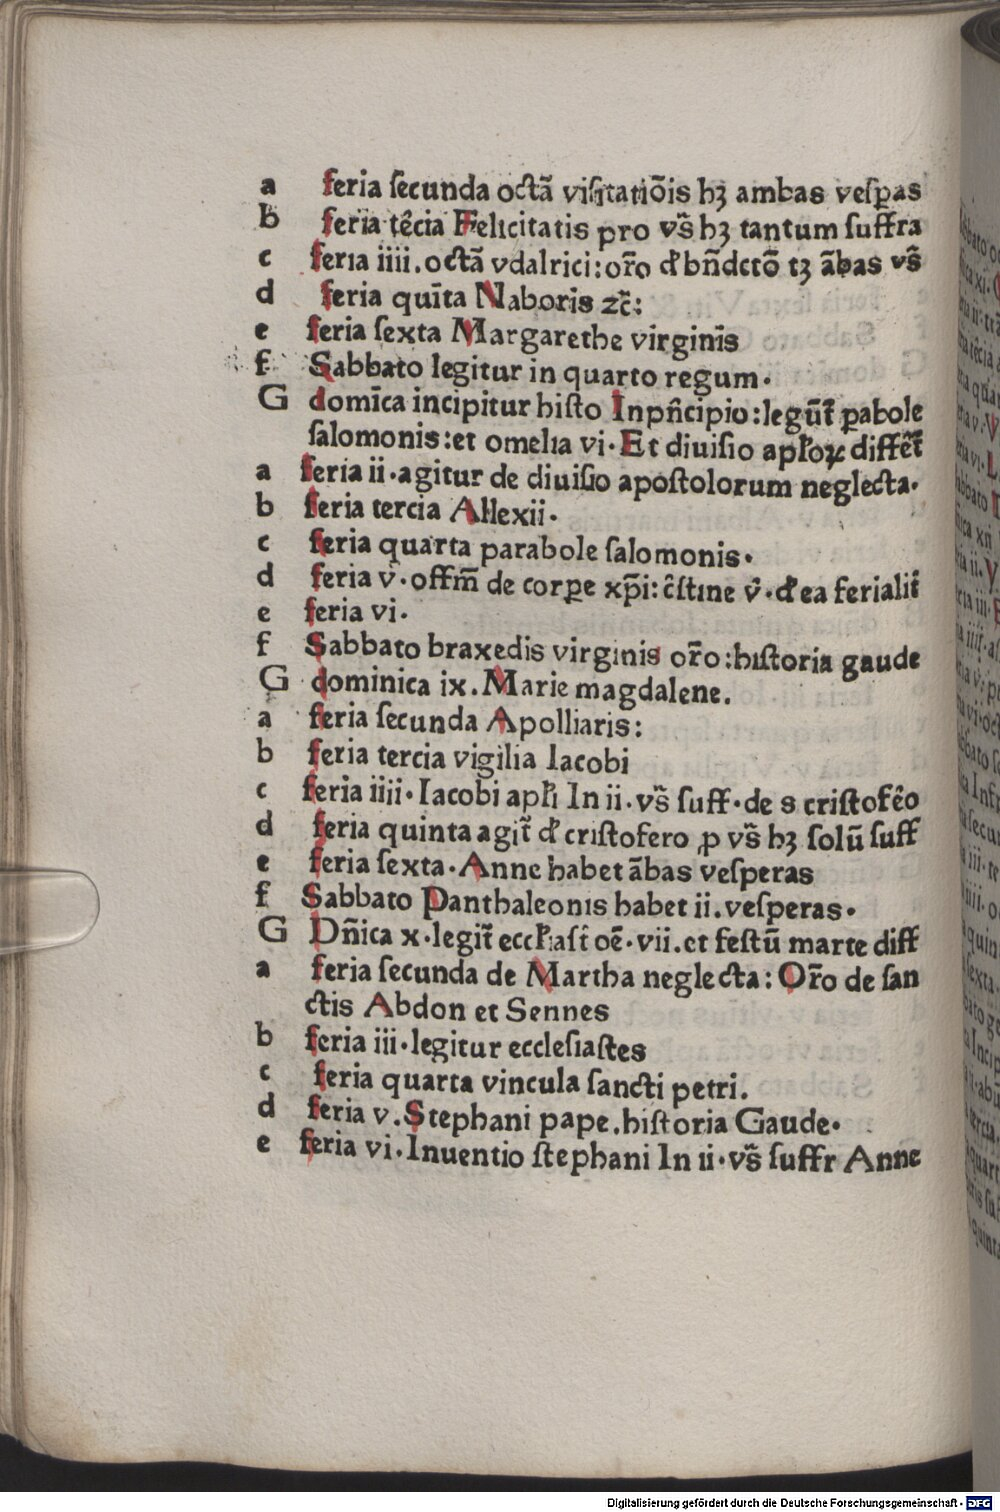 a feria ſecunda octā viſitatiōis hꝫ ambas veſꝑas
b feria tēcia Felicitatis pro vs̄ hꝫ tantum ſuffra
c feria iiii. octā vdalrici: or̄o d' bn̄dctō tꝫ ābas vs̄
d feria quīta Naboris ꝛc̄:
e feria ſexta Margarethe virginīs
f Sabbato legitur in quarto regum.
G domīca incipitur hiſto In pn̄cipio: legūt̄ ꝑabole
ſalomonis: et omelia vi. Et diuiſio apl'oꝝ differ̄t̄
a feria ii. agitur de diuiſio apoſtolorum neglecta.
b feria tercia Allexii.
c feria quarta parabole ſalomonis.
d feria v. offm̄ de corꝑe xp̄i: c̄ſtine v̄. d' ea ferialit̄
e feria vi.
f Sabbato braxedis virginis or̄o: hiſtoria gaude
G dominica ix. Marie magdalene.
a feria ſecunda Apolliaris:
b feria tercia vigilia Iacobi
c feria iiii. Iacobi apl'i In ii. vs̄ ſuff. de s criſtofēo
d feria quinta agit̄ d' criſtofero ꝓ vs̄ hꝫ ſolū ſuff
e feria ſexta. Anne habet ābas veſperas
f Sabbato Panthaleonis habet ii. veſperas.
G Dn̄ica x. legit̄ eccl'iaſt̄ oē. vii. et feſtū marte diff
a feria ſecunda de Martha neglecta: Or̄o de ſan
ctis Abdon et Sennes
b feria iii. legitur eccleſiaſtes
c feria quarta vincula ſancti petri.
d feria v. Stephani pape. hiſtoria Gaude.
e feria vi. Inuentio ſtephani In ii. vs̄ ſuffr Anne
Digitalisierung gefördert durch die Deutsche Forschungsgemeinschaft - DFG